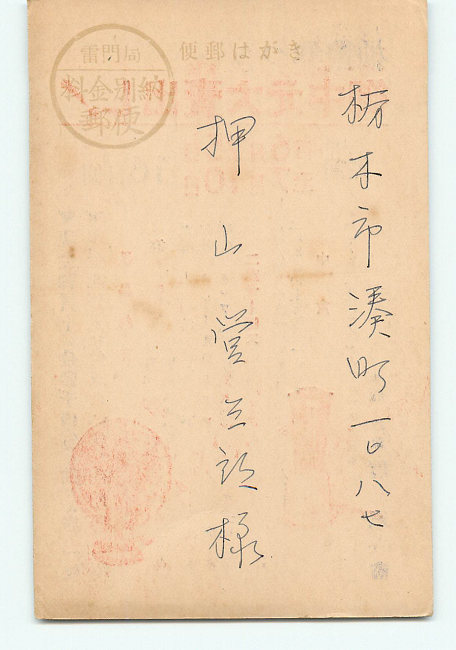 便郵はがき
雷門局
料金別納
郵便
栃木市湊町一〇八七
押山営三郎様